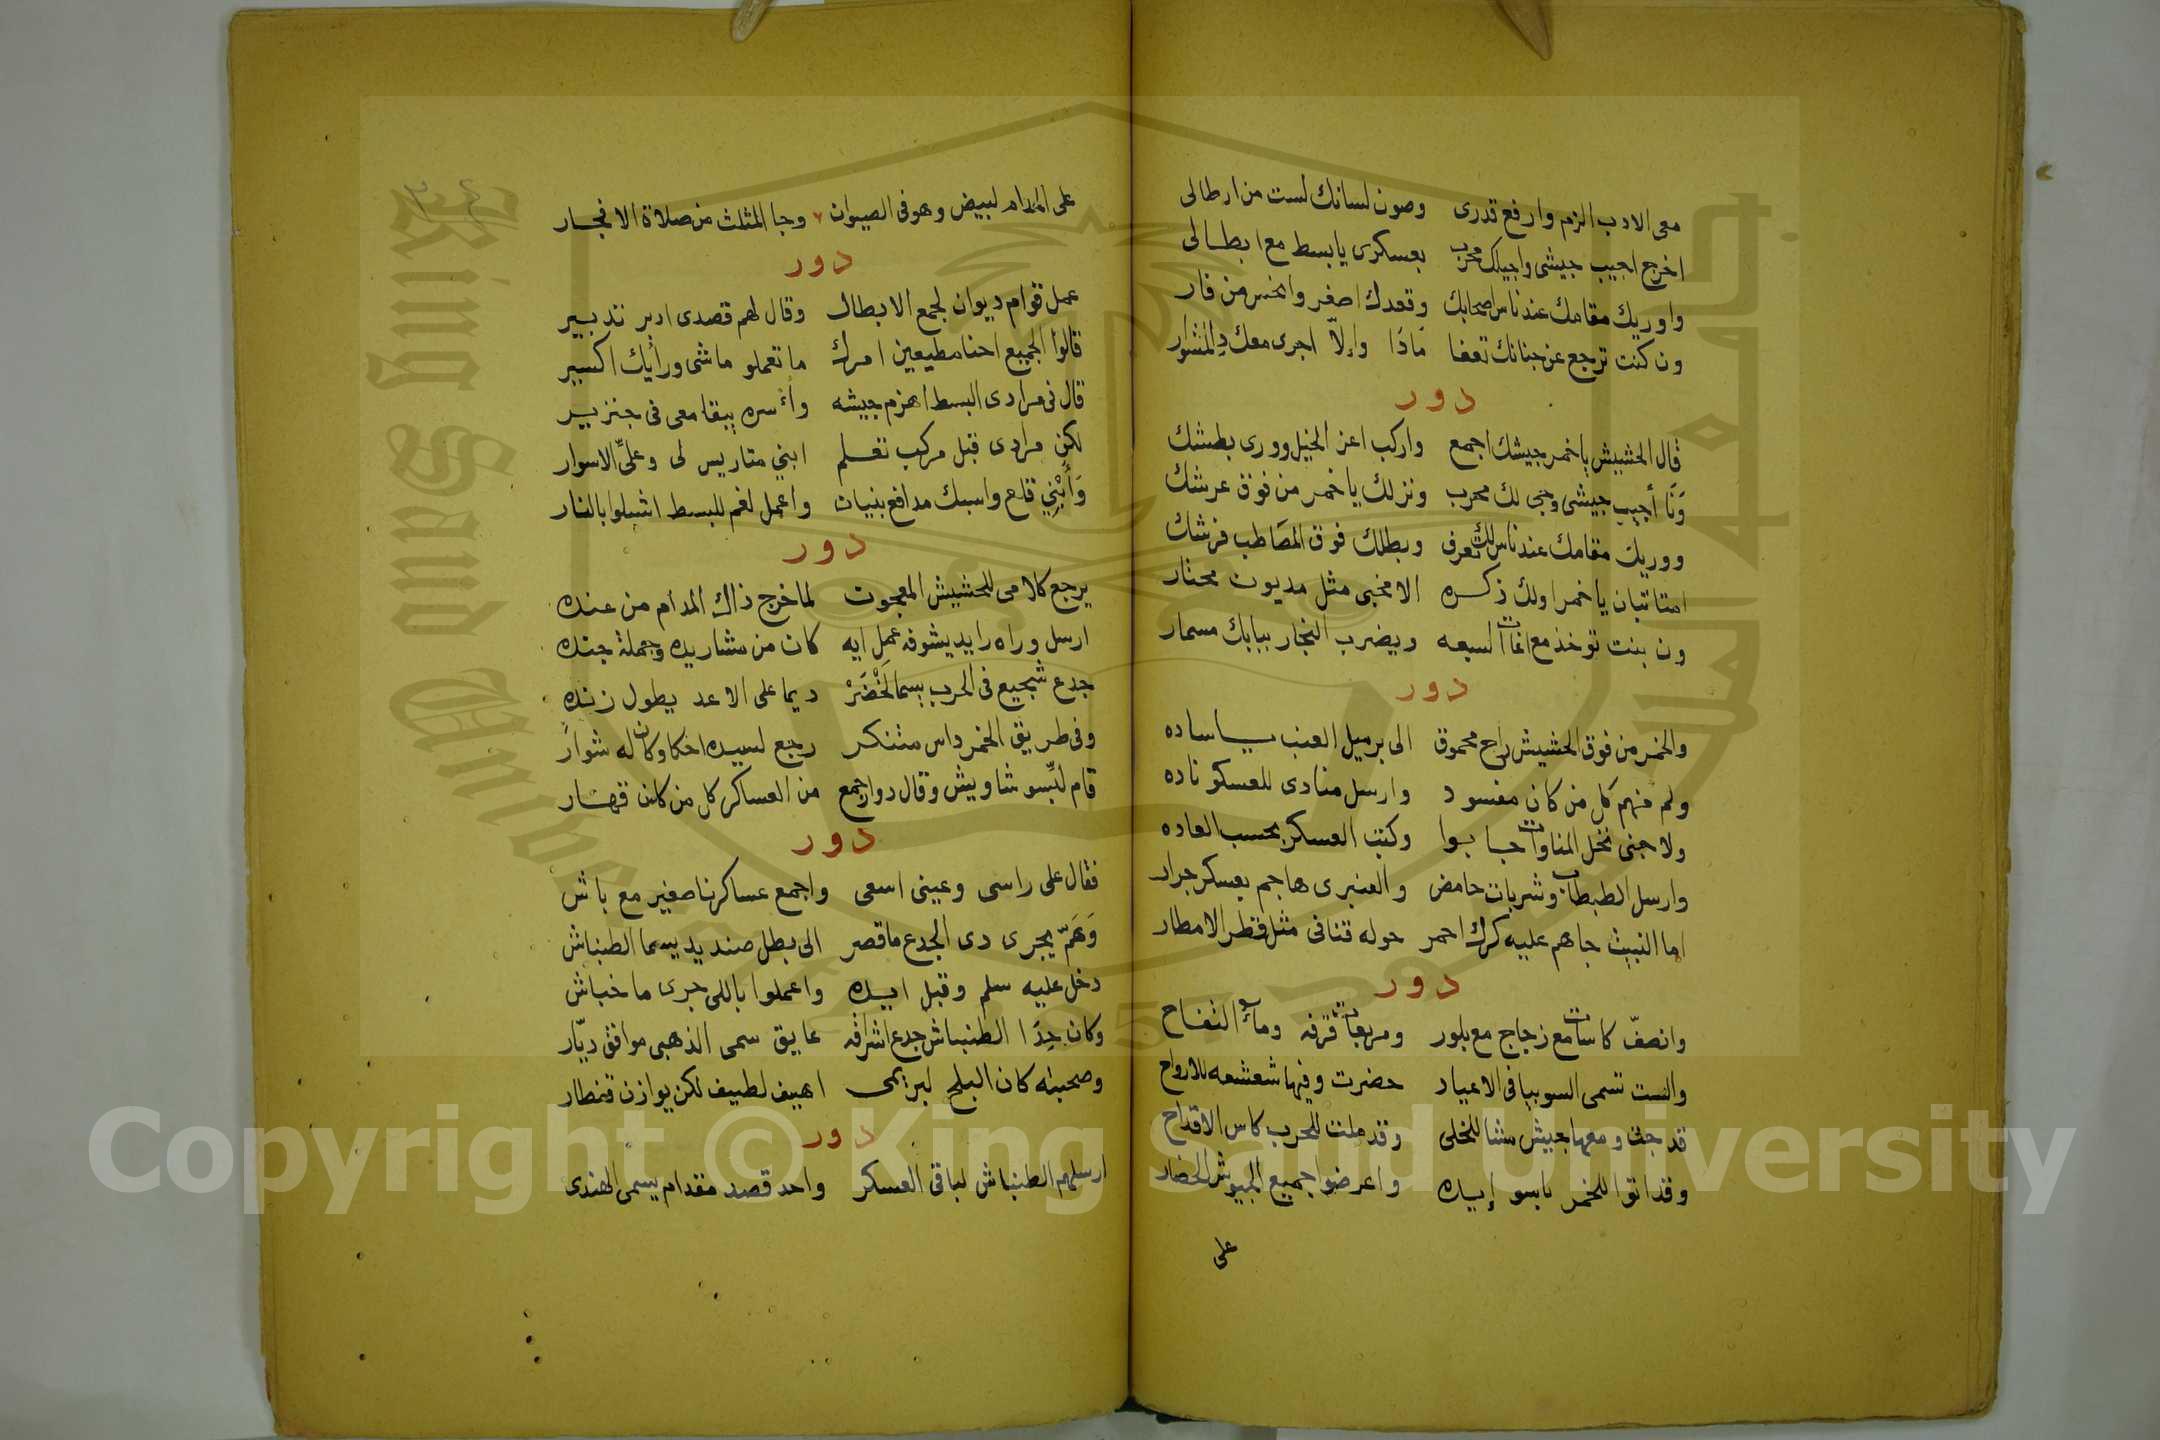 معى الادب الزم وارفع قدرى وصون لسانك لست من ارطالى
اخرج اجيب جيشى واجيلك محرب بعسكرى يابسط مع ابطالى
واوريك مقامك عند ناس اصحابك وتعدك اصغر وانحس من فار
ون كنت ترجع عن جنانك تعفا مَاذَا وإلاّ اجرى معك دِالمشوار
دور
قال الحشيش ياخمر جيشك اجمع واركب اعز الخيل وورى بطشك
وَنَا أجيب جيشى وجى لك محرب ونزلك ياخمر من فوق عرشك
ووريك مقامك عند ناس لك تعرفى وبطلك فوق المصَاطب فرشك
امتا تبان ياخمر اولك ذكره الا مخبى مثل مديون محتار
ون بنت توخذ مع اغاآت السبعه ويضرب النجار ببابك مسمار
دور
والخمر من فوق الحشيش راح محموق الى برميل العنب ياساده
ولم منهم كل من كان مفسود وارسل منادى للعسكر ناده
ولاجنى نخل المناوآت جابوا وكتب العسكر بحسب العاده
وارسل الطبطاب وشربات حامض والعنبرى هاجم بعسكر جرار
اما النبيت جاهم عليه كرك احمر حوله قنانى مثل قطر الامطار
دور
وانصفّ كاسات مع زجاج مع بلور ومربعات قرفه ومآء التفاح
والست تسمى السوبيا فى الاعياد حضرت وفيها شعشعه للارواح
قد جت ومعها جيش مشا للخلى وقد ملت للحرب كاس الاقداح
وقد اتوا للخمر باسو إيده واعرضوا جميع الجيوش الحضار
على
على المدام لبيض وهو فى الصيوان وجا المثلث من صلاة الافجار
دور
عمل قوام ديوان لجمع الابطال وقال لهم قصدى ادبر تدبير
قالوا الجميع احنا مطيعين امرك ما تعملو ماشى ورأيك اكسير
قال فى مرادى البسط اهزم جيشه وأسره يبقا معى فى جنزير
لكن مرادى قبل مركب تقلم ابنى متاريس لى وعلىّ الاسوار
وَأَبْنِي قلاع واسبك مدافع بنيات واعمل لغم للبسط اشيلوا بالنار
دور
يرجع كلامى للحشيش المعجون لما خرج ذاك المدام من عنده
ارسل وراه رايد يشوفه عمل ايه كان من مشاريده وجملة جنده
جدع شجيع فى الحرب يسما لخْضَرْ ديما على الاعد يطول زنده
وفى طريق الخمر داس متنكر رجع لسيده احكا وكان له شوار
قام لبِّسو شاويش وقال دوار اجمع من العساكر كل من كان قهار
دور
فقال على راسى وعينى اسعى واجمع عساكرنا صغير مع باش
وَهَمّ يجرى دى الجدع ما قصر الى بطل صنديد يسما الطنباش
دخل عليه سلم وقبل ايده واعملوا باللى جرى ما خباش
وكان جِدَا الطنباش جدع اشرافه عايق سمى الذهبى موافق ديّار
وصحبته كان البلح لبريمى اهيف لطيف لكن يوازن قنطار
دور
ارسلهم الطنباش لباقى العسكر واحد قصد مقدام يسمى الهندى
King Saud University
1957
Copyright © King Saud University